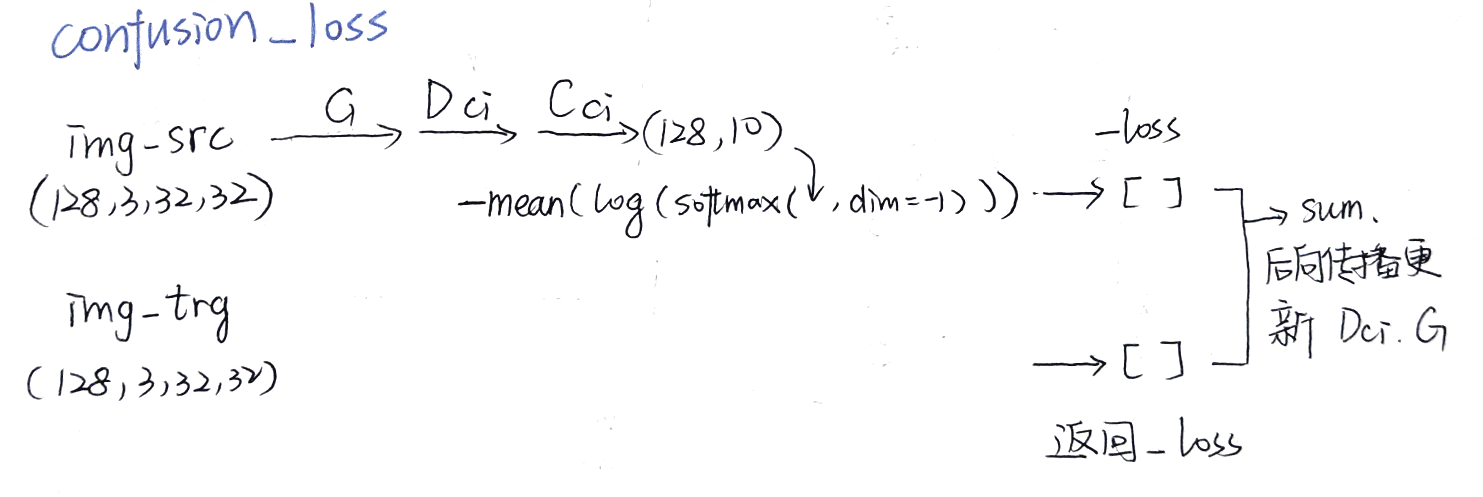 confusion_loss
img-src G Dci Cci (128,10) -loss
(128,3,32,32) -mean(log(softmax( , dim=-1))) [ ] sum.
后向传播更
img-trg 新 Dci. G
(128,3,32,32) [ ]
返回_loss